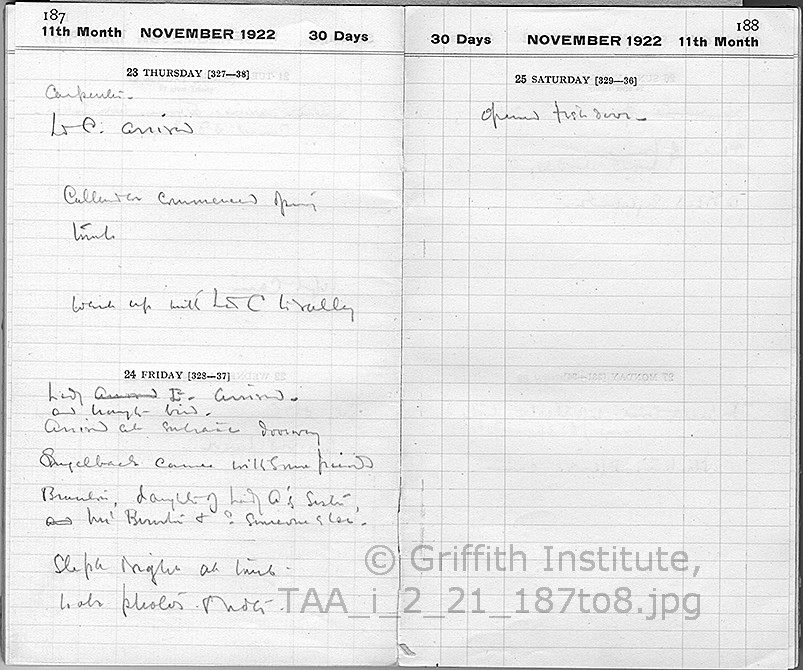 187
11th Month NOVEMBER 1922 30 Days
23 THURSDAY [327—38]
Carpenter.
Ld C. arrived
Callender commenced opening
tomb
went up with Ld C to valley
24 FRIDAY [328—37]
Lady arrived E. arrived.
and brought bird.
Arrived at entrance doorway
Engelbach came with some friends
daughter of Lady A's sister,
and & ? Someone else.
Slept night at tomb.
took photos & notes.
188
30 Days NOVEMBER 1922 11th Month
25 SATURDAY [329—36]
opened first door —
© Griffith Institute,
TAA_i_2_21_187to8.jpg